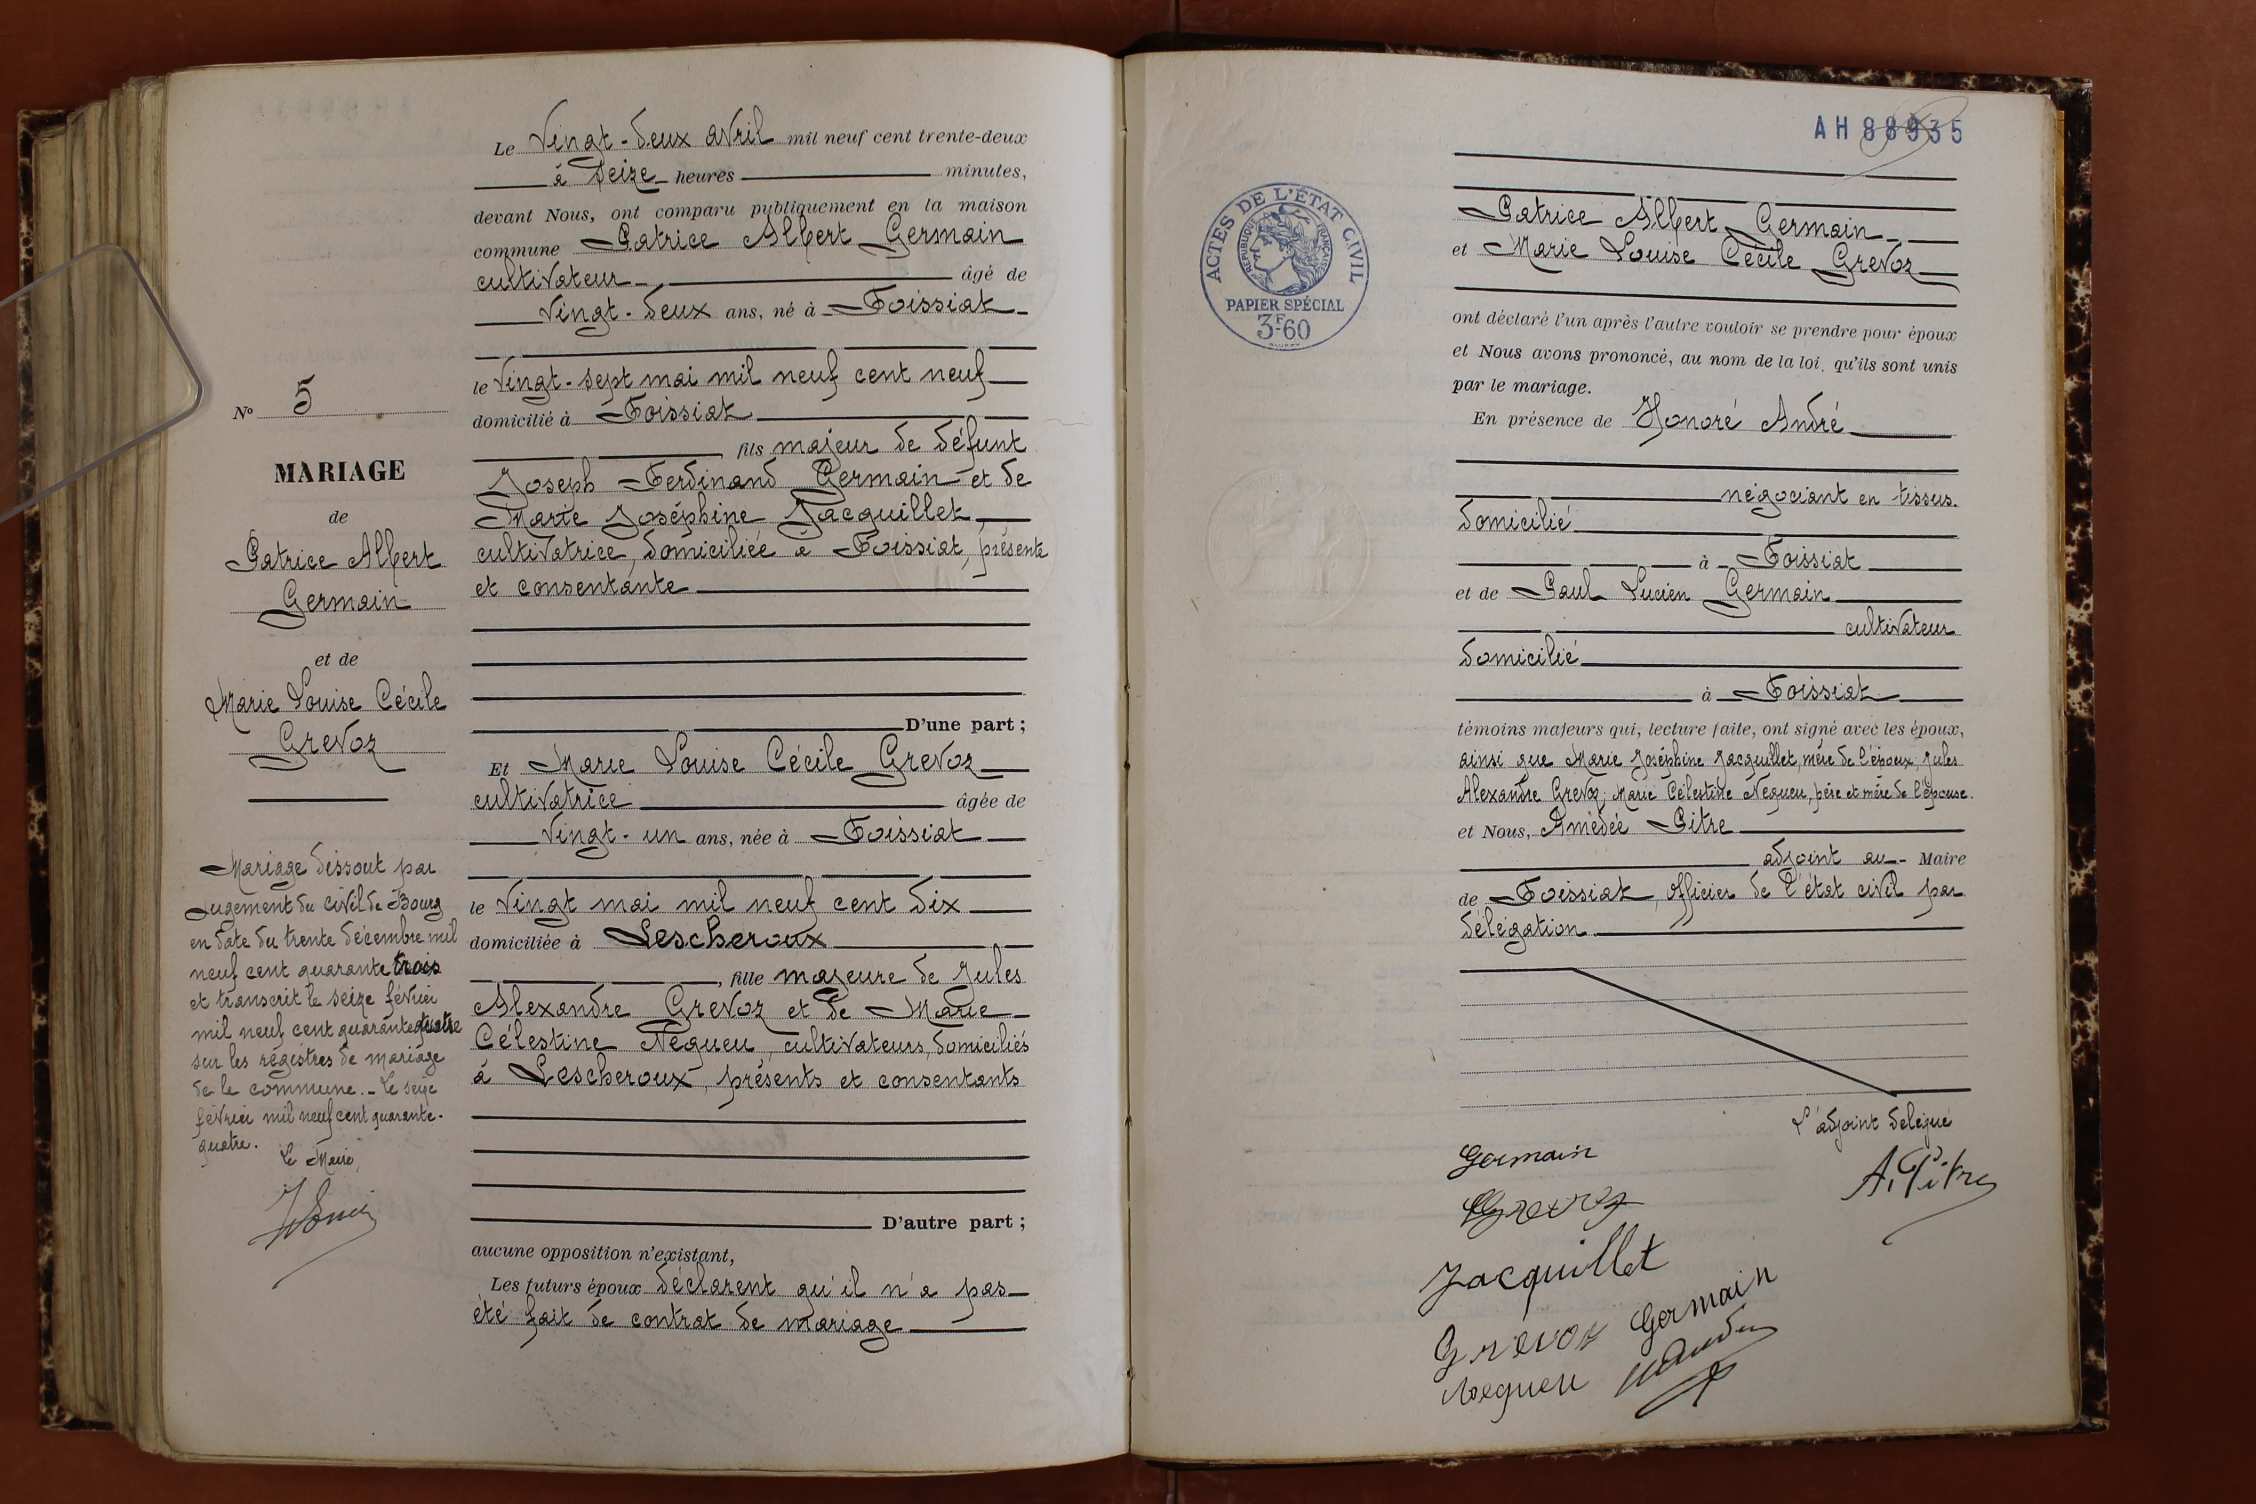 N° 5
MARIAGE
de
Patrice Albert
Germain
et de
Marie Louise Cécile
Grevoz
Mariage dissout par
jugement du civil de Bourg
en date du trente décembre mil
neuf cent quarante trois
et transcrit le seize février
mil neuf cent quarante quatre
sur les régistres de mariage
de le commune. - Le seize
février mil neuf cent quarante-
quatre.
Le Maire,
Le Vingt-deux avril mil neuf cent trente-deux
à seize heures minutes,
devant Nous, ont comparu publiquement en la maison
commune Patrice Albert Germain
cultivateur âgé de
Vingt-deux ans, né à Foissiat
le Vingt-sept mai mil neuf cent neuf
domicilié à Foissiat
fils majeur de défunt
Joseph Ferdinand Germain et de
Marie Joséphine Jacquillet,
cultivatrice, domiciliée à Foissiat, présente
et consentante
D'une part ;
Et Marie Louise Cécile Grevoz
cultivatrice âgée de
Vingt-un ans, née à Foissiat
le Vingt mai mil neuf cent dix
domiciliée à Lescheroux
, fille majeure de Jules
Alexandre Grevoz et de Marie
Célestine Negueu, cultivateurs, domiciliés
à Lescheroux, présents et consentants
D'autre part ;
aucune opposition n'existant,
Les futurs époux déclarent qu'il n'a pas
été fait de contrat de mariage
AH 88935
ACTES DE L'ÉTAT CIVIL
RÉPUBLIQUE FRANÇAISE
PAPIER SPÉCIAL
3F60
Patrice Albert Germain
et Marie Louise Cécile Grevoz
ont déclaré l'un après l'autre vouloir se prendre pour époux
et Nous avons prononcé, au nom de la loi, qu'ils sont unis
par le mariage.
En présence de Honoré André
négociant en tissus.
domicilié
à Foissiat
et de Paul Lucien Germain
cultivateur
domicilié
à Foissiat
témoins majeurs qui, lecture faite, ont signé avec les époux,
ainsi que Marie Joséphine Jacquillet, mère de l'époux, Jules
Alexandre Grevoz, Marie Célestine Negueu, père et mère de l'épouse.
et Nous, Amédée Pitre
adjoint au Maire
de Foissiat, officier de l'état civil par
délégation
L'adjoint délégué
Germain
A. Pitre
Grevoz
Jacquillet
Grevoz Germain
Negueu